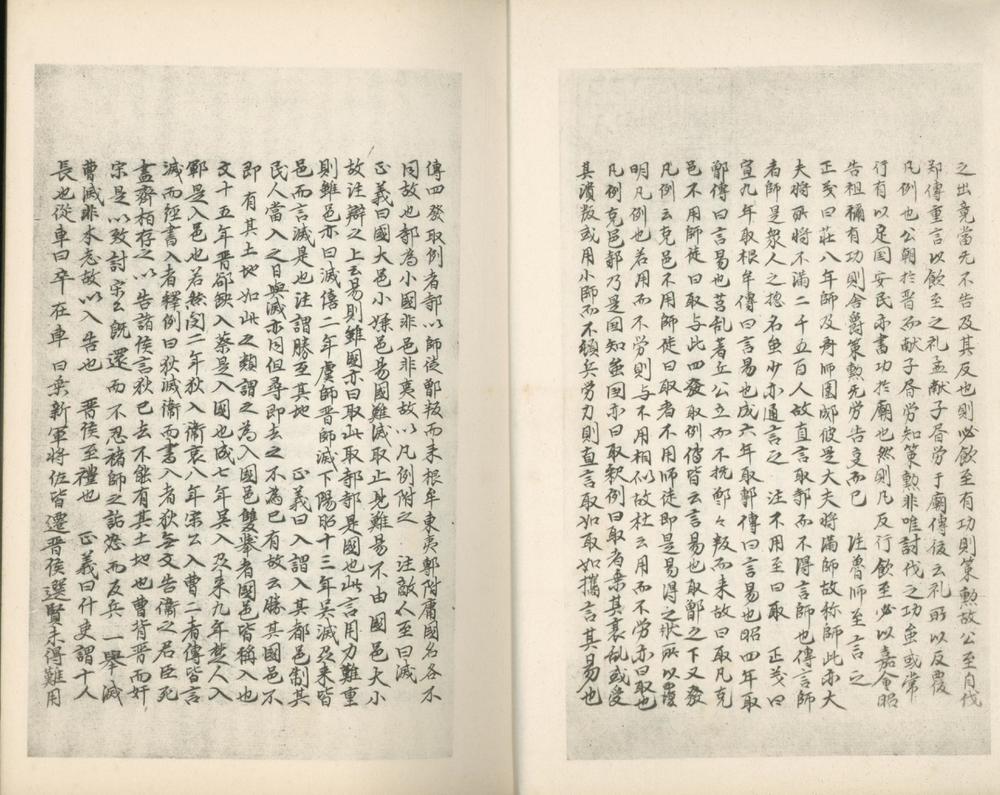 之出竟當先不告及其反也則必飲至有功則策勲故公至自伐
鄭傳重言以飲至之礼孟献子昬勞于廟傳復云礼所以反覆
凡例也公朝於晋而献子昬勞知策勲非唯討伐之功虽或常
行有以足国安民亦書功於廟也然則凡反行飲至必以嘉會昭
告祖禰有功則舍爵策勲无勞告变而已　注魯師至言之
正義曰莊八年師及齊師圍郕彼是大夫將滿師故称師此亦大
夫將所將不滿二千五百人故直言取邿而不得言師也傳言師
者師是衆人之捴名虽少亦通言之　注不用至曰取　正義曰
宣九年取根牟傳曰言易也成六年取鄟傳曰言易也昭四年取
鄫傳曰言易也莒乱著丘公立而不抚鄫々叛而来故曰取凡克
邑不用師徒曰取与此四發取例傳皆云言易也取鄫之下又發
凡例云克邑不用師徒曰取者不用師徒即是易得之狀所以覆
明凡例也若用而不労則与不用相似故杜云用而不労亦曰取也
凡例克邑邿乃是国知虽国亦曰取釈例曰取者乗其衰乱或受
其潰叛或用小師而不頓兵労力則直言取如取如攜言其易也
傳四發取例者邿以師徒鄫叛而来根牟東夷鄟附庸國名各不
同故也邿為小國非邑非夷故以凡例附之　注敵人至曰滅
正義曰國大邑小嫌邑易國難滅取止見難易不由國邑大小
故注辯之上云易則雖國亦曰取此取邿邿是國也此言用力難重
則雖邑亦曰滅僖二年虞師晋師滅下陽昭十三年吴滅州来皆
邑而言滅是也注謂勝至其地　正義曰入謂入其都邑制其
民人當入之日與滅亦同但尋即去之不為已有故云勝其國邑不
即有其土地如此之類謂之為入國邑雙舉者國邑皆稱入也
文十五年晋郤缺入蔡是入國也成七年吴入州来九年楚人入
鄆是入邑也若然閔二年狄入衞哀八年宋公入曹二者傳皆言
滅而經書入者釋例曰狄滅衞而書入者狄無文告衞之君臣死
盡齊桓存之以告諸侯言狄已去不能有其土地也曹背晋而奸
宋是以致討宋公既還而不忍褚師之詬怒而反兵一舉滅
曹滅非本志故以入告也　晋侯至禮也　正義曰什吏謂十人
長也從車曰卒在車曰乗新軍將佐皆遷晋侯選賢未得難用